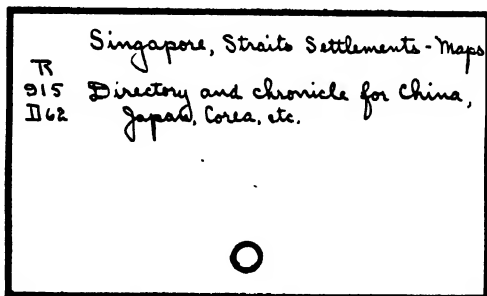 Singapore, Straits Settlements - Maps
R
915 Directory and chronicle for China,
D62 Japan, Corea, etc.